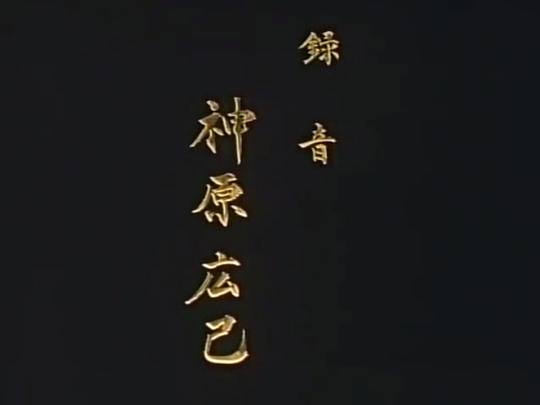 録音
神原広己